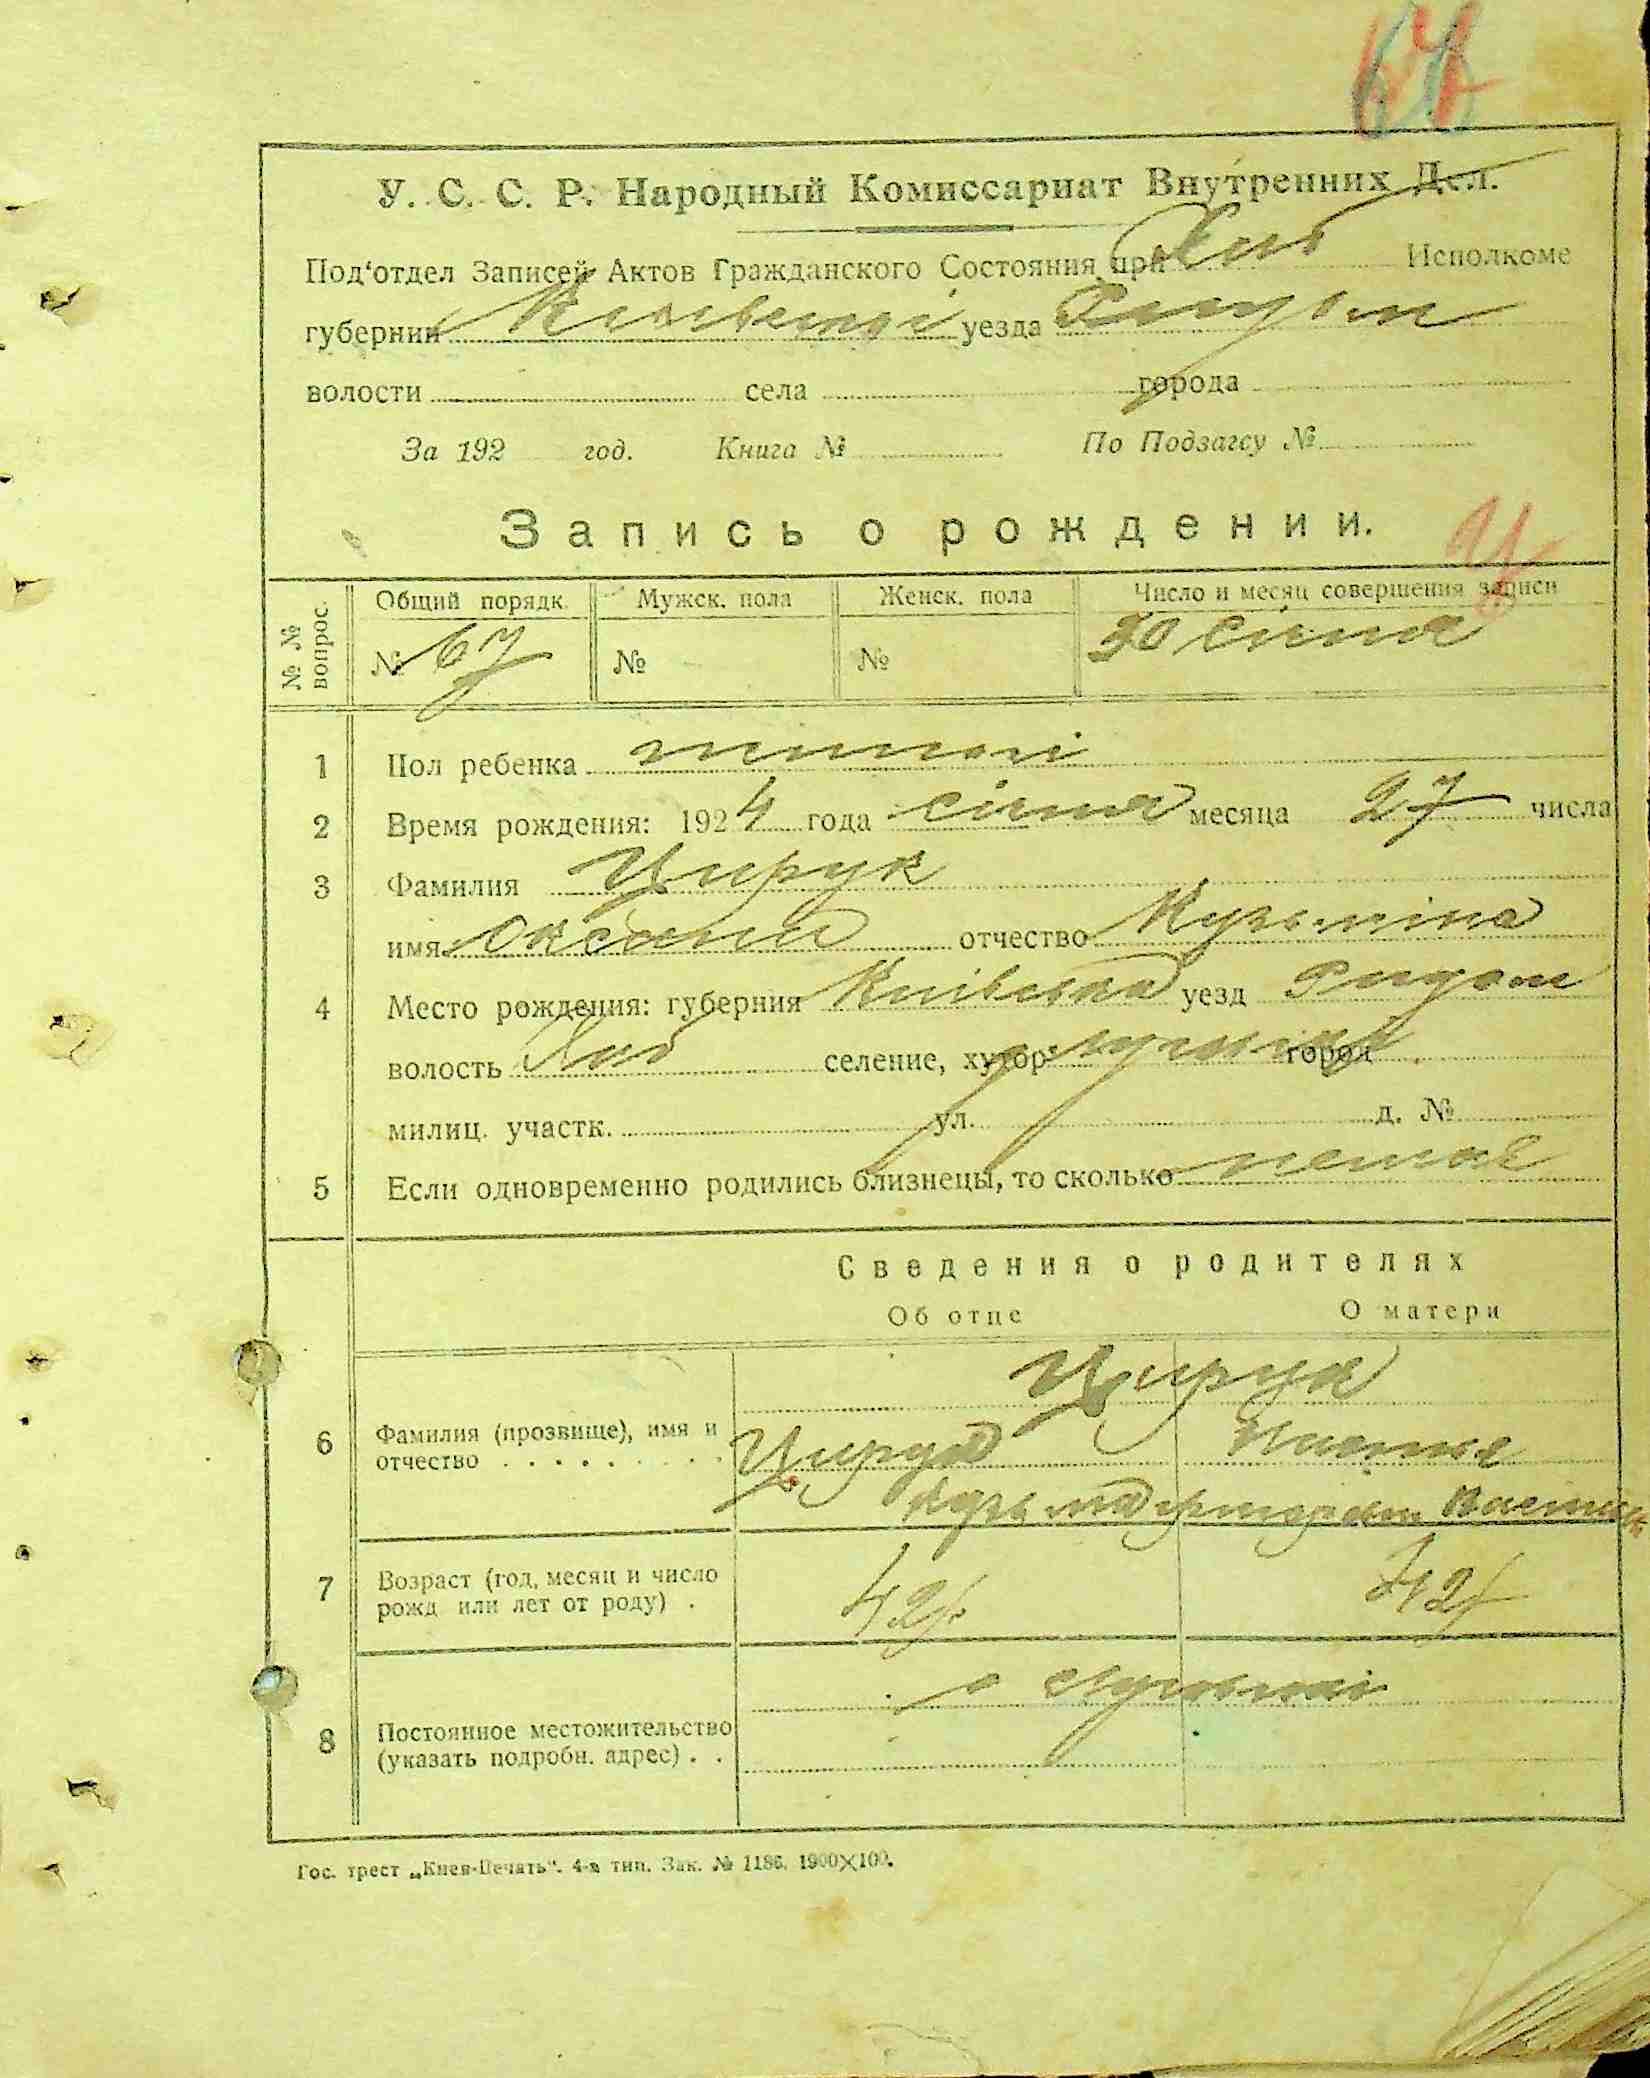 67
У. С. С. Р. Народный Комиссариат Внутренних Дел.
Под'отдел Записей Актов Гражданского Состояния при Хаб Исполкоме
губернии Київської уезда Радом
волости села города
За 192 год. Книга № По Подзагсу №
Запись о рождении.
Ц
№ № вопрос. Общий порядк. Мужск. пола Женск. пола Число и месяц совершения записи
№ 67 № № 30 січня
1 Пол ребенка жіночої
2 Время рождения: 1924 года січня месяца 27 числа
3 Фамилия Цирук
имя Оксана отчество Кузьмівна
4 Место рождения: губерния Київська уезд Радом
волость Хаб селение, хутор город
милиц. участк. ул. д. №
5 Если одновременно родились близнецы, то сколько немає
Сведения о родителях
Об отце О матери
Цирук
6 Фамилия (прозвище), имя и отчество Цирук
Кузьма
7 Возраст (год, месяц и число рожд или лет от роду) 42 р. 42 р.
8 Постоянное местожительство (указать подробн. адрес)
Гос. трест „Киев-Печать“. 4-я тип. Зак. № 1186. 1900×100.